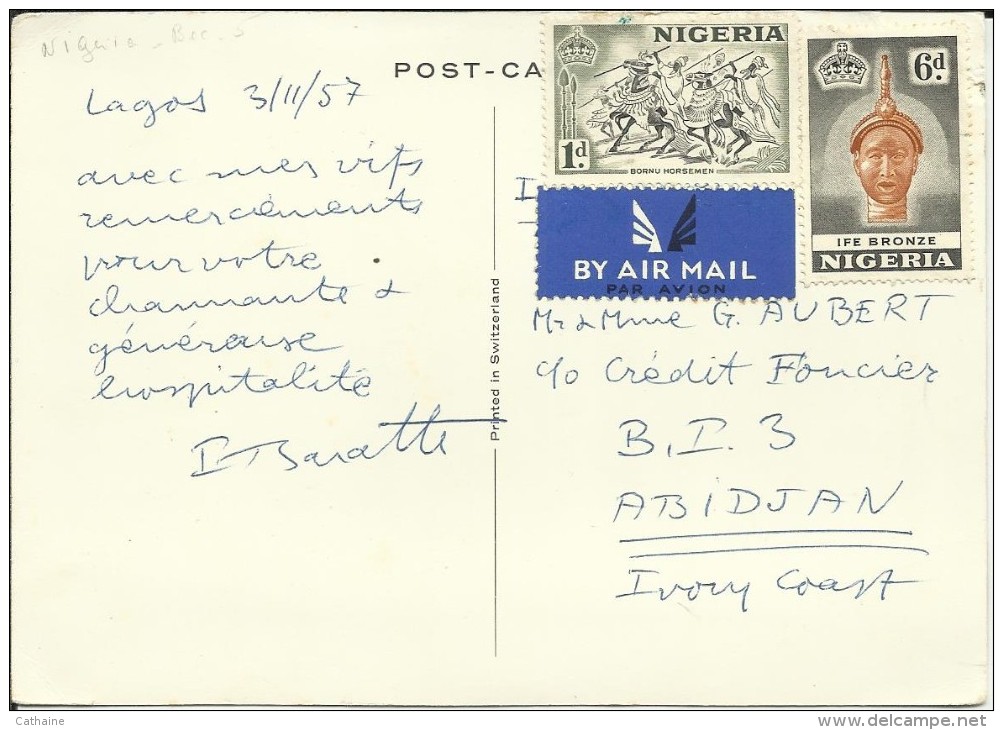 Nigeria
POST-CA
Lagos 3/11/57
avec mes vifs
remerciements
pour votre
charmante &
généreuse
hospitalité
Printed in Switzerland
NIGERIA
1d
BORNU HORSEMEN
6d.
IFE BRONZE
NIGERIA
BY AIR MAIL
PAR AVION
Mr & Mme G. AUBERT
c/o Crédit Foncier
B.I. 3
ABIDJAN
Ivory Coast
Cathaine
delcampe.net